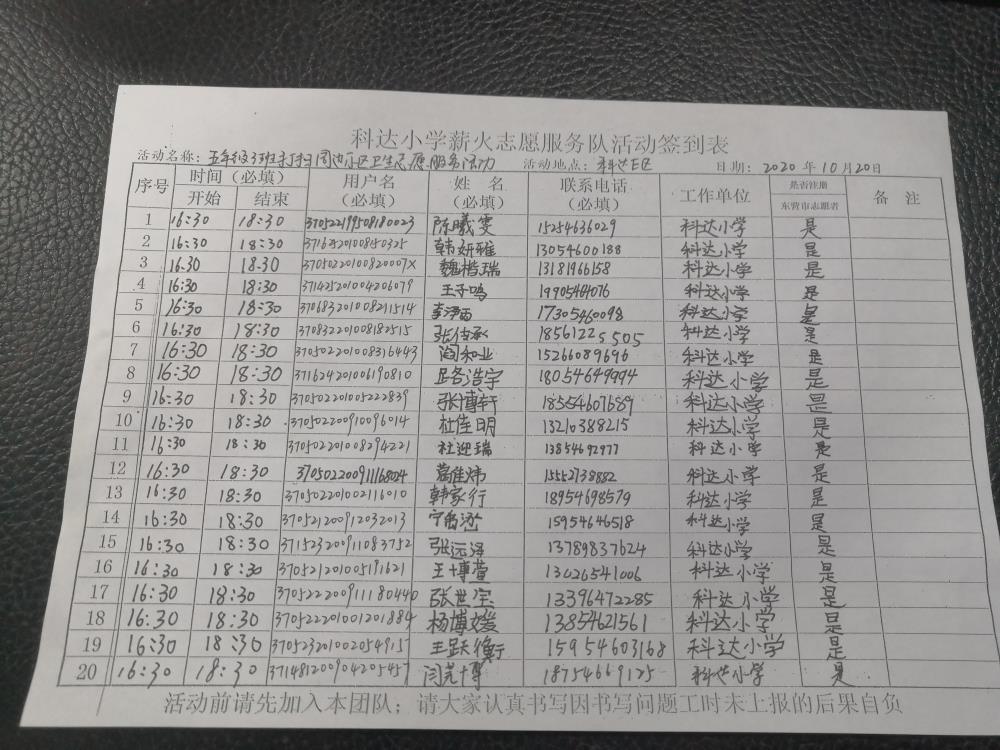 科达小学薪火志愿服务队活动签到表
活动名称：五年级3班打扫周边小区卫生志愿服务活力 活动地点：科达E区 日期：2020年10月20日
序号 时间（必填） 用户名（必填） 姓 名（必填） 联系电话（必填） 工作单位 是否注册东营市志愿者 备 注
开始 结束
1 16:30 18:30 370522199508180023 陈曦雯 15254636029 科达小学 是
2 16:30 18:30 韩妍雅 13054600188 科达小学 是
3 16:30 18:30 37050220100820007X 魏楷瑞 13181966158 科达小学 是
4 16:30 18:30 371425201004206079 王子鸣 科达小学 是
5 16:30 18:30 370683201008211514 17305460098 科达小学 是
6 16:30 18:30 370832201008182515 张佳承 18561225505 科达小学 是
7 16:30 18:30 370502201008316443 阎和业 15266089696 科达小学 是
8 16:30 18:30 371624201006190810 路浩宇 18054649994 科达小学 是
9 16:30 18:30 370502201005222839 张博轩 18554607689 科达小学 是
10 16:30 18:30 370502200910096014 杜佳明 13210388215 科达小学 是
11 16:30 18:30 370502201008294221 杜迎瑞 13854692977 科达小学 是
12 16:30 18:30 15552738882 科达小学 是
13 16:30 18:30 370502201002116010 韩家行 18954698579 科达小学 是
14 16:30 18:30 370521200912032013 15954646518 科达小学 是
15 16:30 18:30 371523200911083752 张远泽 13789837624 科达小学 是
16 16:30 18:30 370521201005191621 王博萱 13026541006 科达小学 是
17 16:30 18:30 370522200911180440 张世宝 13396472285 科达小学 是
18 16:30 18:30 370522201001201884 杨博媛 13854621561 科达小学 是
19 16:30 18:30 370523201002054915 王跃衡 15954603168 科达小学 是
20 16:30 18:30 371481200904205457 18754669125 科达小学 是
活动前请先加入本团队；请大家认真书写因书写问题工时未上报的后果自负